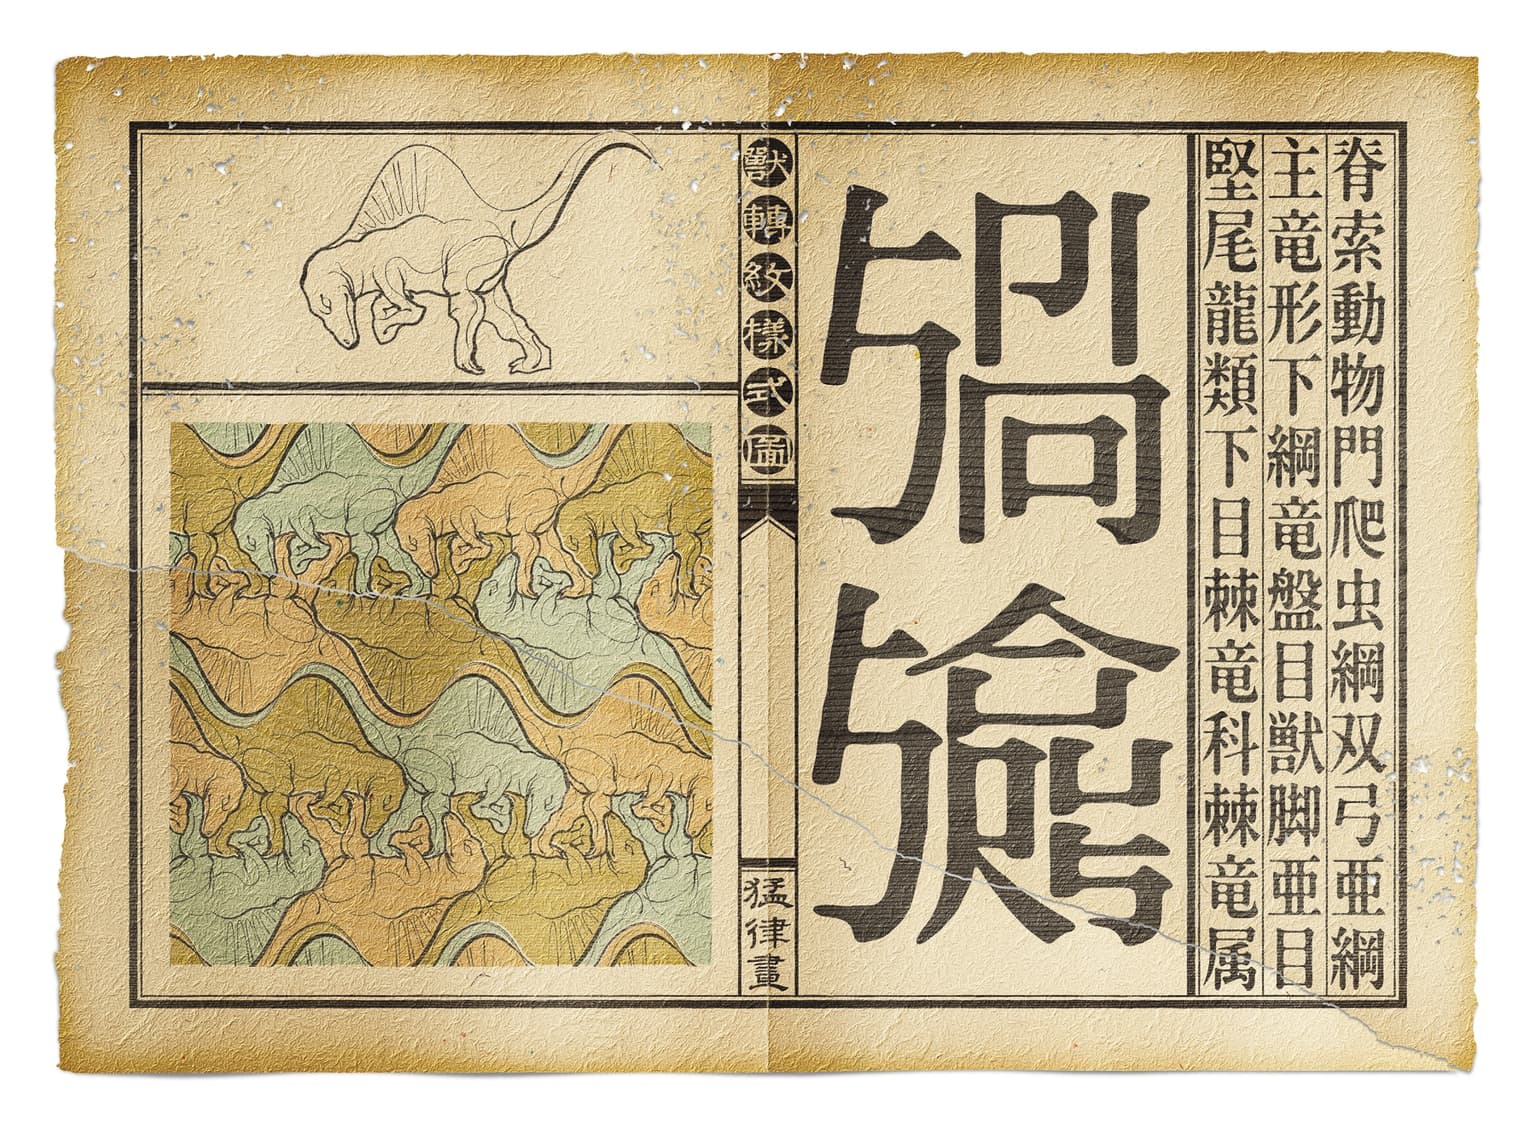 脊索動物門爬虫綱双弓亜綱
主竜形下綱竜盤目獣脚亜目
堅尾龍類下目棘竜科棘竜属
獸轉紋樣式圖
猛律畫